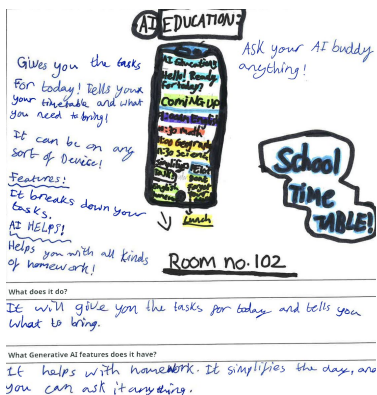 AI EDUCATION:
Gives you the tasks
For today! Tells you
your timetable and what
you need to bring!
It can be on any
sort of Device!
Features:
It breaks down your
tasks.
AI HELPS!
Helps you with all kinds
of homework!
AI Education
Hello! Ready
for today?
COMING UP
English
Lunch
Ask your AI buddy
anything!
School
Time
TABLE!
Room no. 102
What does it do?
It will give you the tasks for today and tells you
what to bring.
What Generative AI features does it have?
It helps with homework. It simplifies the day, and
you can ask it anything.